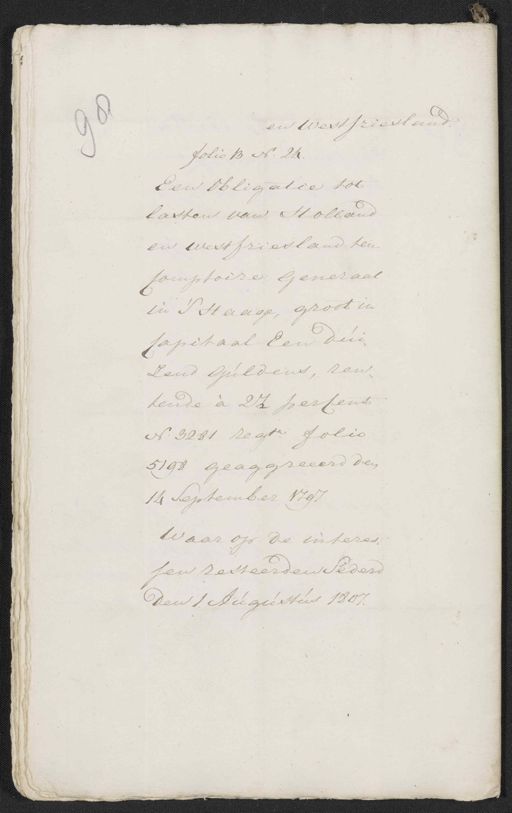 98
en westfriesland.
folio B N. 24.
Een Obligatie tot
lasten van Holland
en westfriesland, ten
Comptoire Generaal
in 'S Haage, groot in
Capitaal Een dúi
Zend Gúldens, ren
tende à 2½ perCent
N 3281 regtr folio
5198 geaggreeerd den
14 September 1797
Waar op de interes,
sen resteerden Séderd
den 1 Aúgústús 1807.